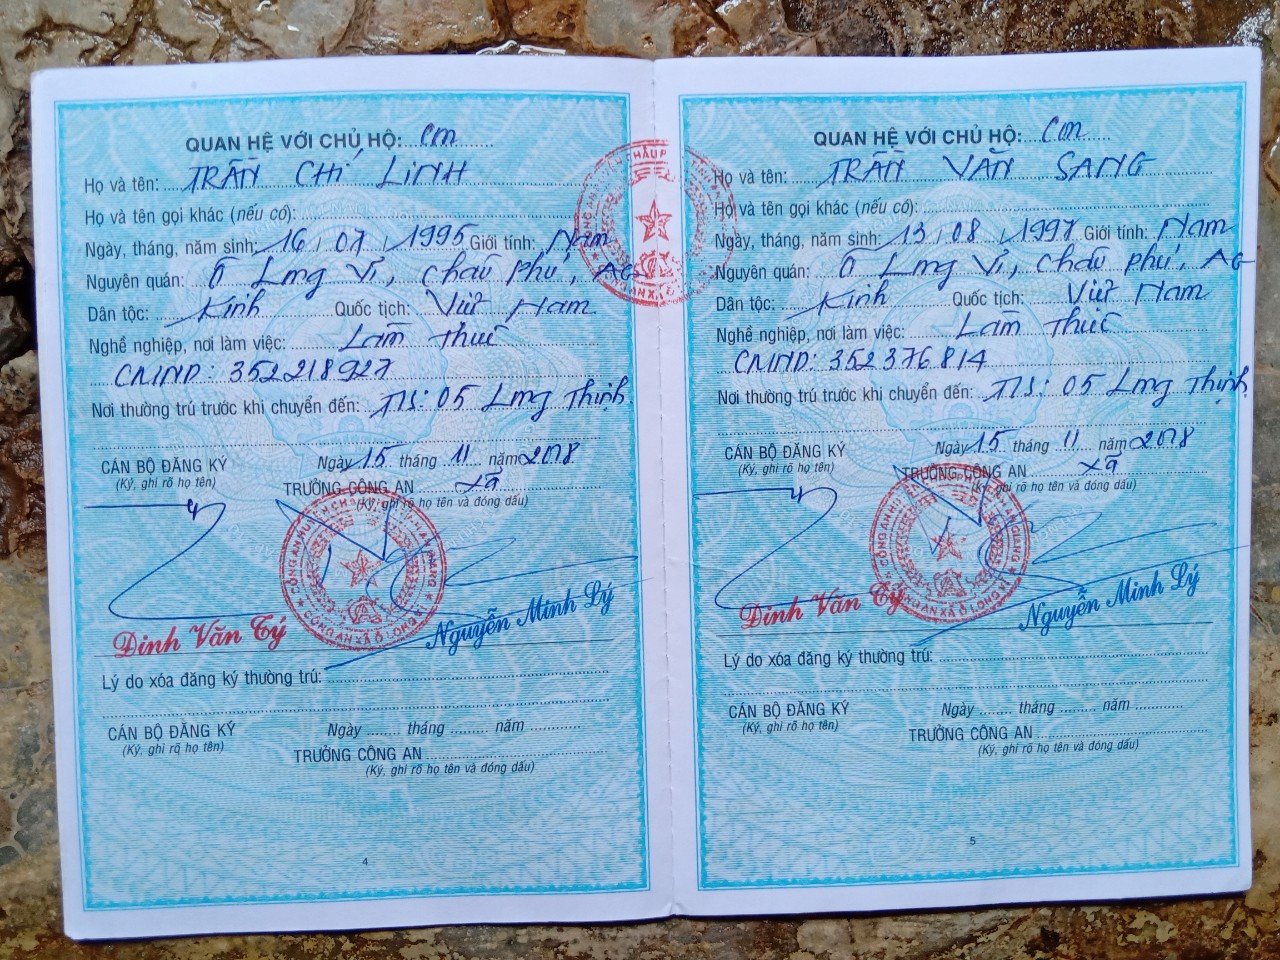 QUAN HỆ VỚI CHỦ HỘ: Cm
Họ và tên: TRẦN CHÍ LINH
Họ và tên gọi khác (nếu có):
Ngày, tháng, năm sinh: 16 / 07 / 1995 Giới tính: Nam
Nguyên quán: Ô Long Vĩ, Châu Phú, AG
Dân tộc: Kinh Quốc tịch: Việt Nam
Nghề nghiệp, nơi làm việc: Làm thuê
CMND: 352218927
Nơi thường trú trước khi chuyển đến: 05 Long Thịnh
CÁN BỘ ĐĂNG KÝ Ngày 15 tháng 11 năm 2018
(Ký, ghi rõ họ tên) TRƯỞNG CÔNG AN xã
(Ký, ghi rõ họ tên và đóng dấu)
Đinh Văn Tý Nguyễn Minh Lý
Lý do xóa đăng ký thường trú:
CÁN BỘ ĐĂNG KÝ Ngày tháng năm
(Ký, ghi rõ họ tên) TRƯỞNG CÔNG AN
(Ký, ghi rõ họ tên và đóng dấu)
4
QUAN HỆ VỚI CHỦ HỘ: Cm
Họ và tên: TRẦN VĂN SANG
Họ và tên gọi khác (nếu có):
Ngày, tháng, năm sinh: 13 / 08 / 1997 Giới tính: Nam
Nguyên quán: Ô Long Vĩ, Châu Phú, AG
Dân tộc: Kinh Quốc tịch: Việt Nam
Nghề nghiệp, nơi làm việc: Làm thuê
CMND: 352376814
Nơi thường trú trước khi chuyển đến: 05 Long Thịnh
CÁN BỘ ĐĂNG KÝ Ngày 15 tháng 11 năm 2018
(Ký, ghi rõ họ tên) TRƯỞNG CÔNG AN xã
(Ký, ghi rõ họ tên và đóng dấu)
Đinh Văn Tý Nguyễn Minh Lý
Lý do xóa đăng ký thường trú:
CÁN BỘ ĐĂNG KÝ Ngày tháng năm
(Ký, ghi rõ họ tên) TRƯỞNG CÔNG AN
(Ký, ghi rõ họ tên và đóng dấu)
5